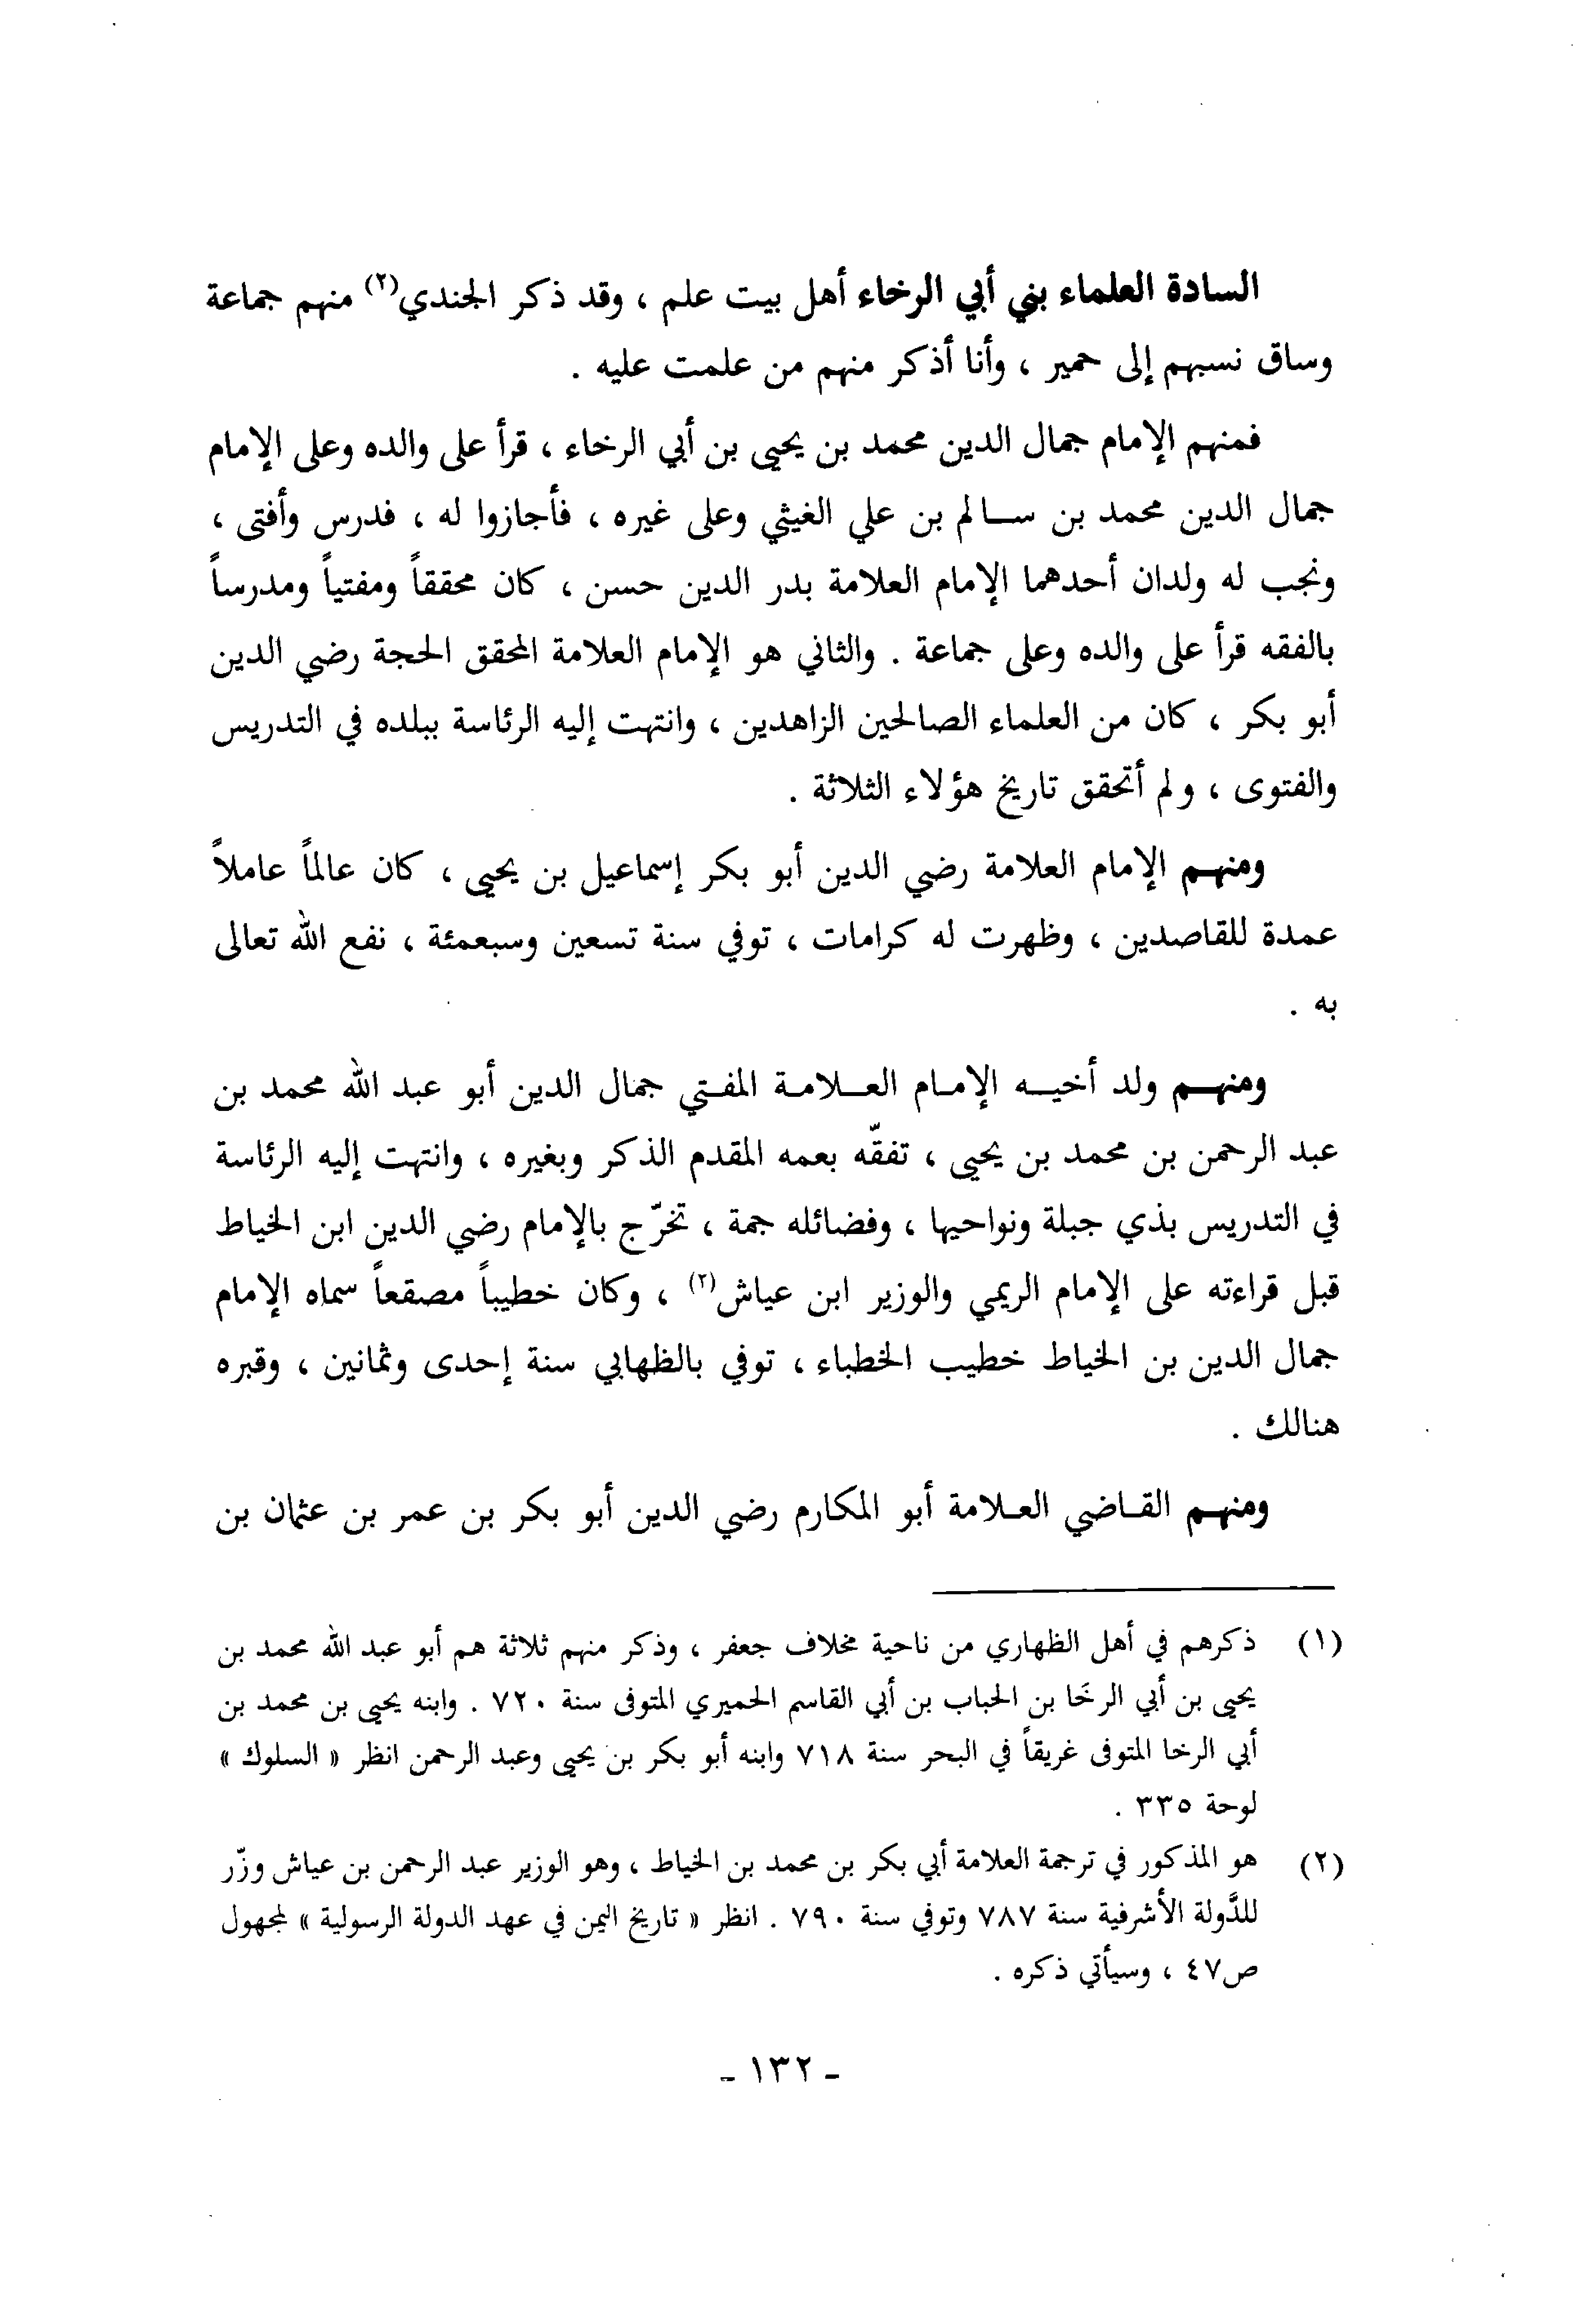 السادة العلماء بني أبي الرخاء أهل بيت علم ، وقد ذكر الجندي(٢) منهم جماعة
وساق نسبهم إلى حمير ، وأنا أذكر منهم من علمت عليه .
فمنهم الإمام جمال الدين محمد بن يحيى بن أبي الرخاء ، قرأ على والده وعلى الإمام
جمال الدين محمد بن سالم بن علي الغيثي وعلى غيره ، فأجازوا له ، فدرس وأفتى ،
ونجب له ولدان أحدهما الإمام العلامة بدر الدين حسن ، كان محققاً ومفتياً ومدرساً
بالفقه قرأ على والده وعلى جماعة . والثاني هو الإمام العلامة المحقق الحجة رضي الدين
أبو بكر ، كان من العلماء الصالحين الزاهدين ، وانتهت إليه الرئاسة ببلده في التدريس
والفتوى ، ولم أتحقق تاريخ هؤلاء الثلاثة .
ومنهم الإمام العلامة رضي الدين أبو بكر إسماعيل بن يحيى ، كان عالماً عاملاً
عمدة للقاصدين ، وظهرت له كرامات ، توفي سنة تسعين وسبعمئة ، نفع الله تعالى
به .
ومنهم ولد أخيه الإمام العلامة المفتي جمال الدين أبو عبد الله محمد بن
عبد الرحمن بن محمد بن يحيى ، تفقّه بعمه المقدم الذكر وبغيره ، وانتهت إليه الرئاسة
في التدريس بذي جبلة ونواحيها ، وفضائله جمة ، تخرّج بالإمام رضي الدين ابن الخياط
قبل قراءته على الإمام الريمي والوزير ابن عياش(٢) ، وكان خطيباً مصقعاً سماه الإمام
جمال الدين بن الخياط خطيب الخطباء ، توفي بالظهابي سنة إحدى وثمانين ، وقبره
هنالك .
ومنهم القاضي العلامة أبو المكارم رضي الدين أبو بكر بن عمر بن عثمان بن
(١) ذكرهم في أهل الظهاري من ناحية مخلاف جعفر ، وذكر منهم ثلاثة هم أبو عبد الله محمد بن
يحيى بن أبي الرخَا بن الحباب بن أبي القاسم الحميري المتوفى سنة ٧٢٠ . وابنه يحيى بن محمد بن
أبي الرخا المتوفى غريقاً في البحر سنة ٧١٨ وابنه أبو بكر بن يحيى وعبد الرحمن انظر « السلوك »
لوحة ٣٣٥ .
(٢) هو المذكور في ترجمة العلامة أبي بكر بن محمد بن الخياط ، وهو الوزير عبد الرحمن بن عياش وزّر
للدَّولة الأشرفية سنة ٧٨٧ وتوفي سنة ٧٩٠ . انظر « تاريخ اليمن في عهد الدولة الرسولية » لمجهول
ص٤٧ ، وسيأتي ذكره .
- ١٣٢ -